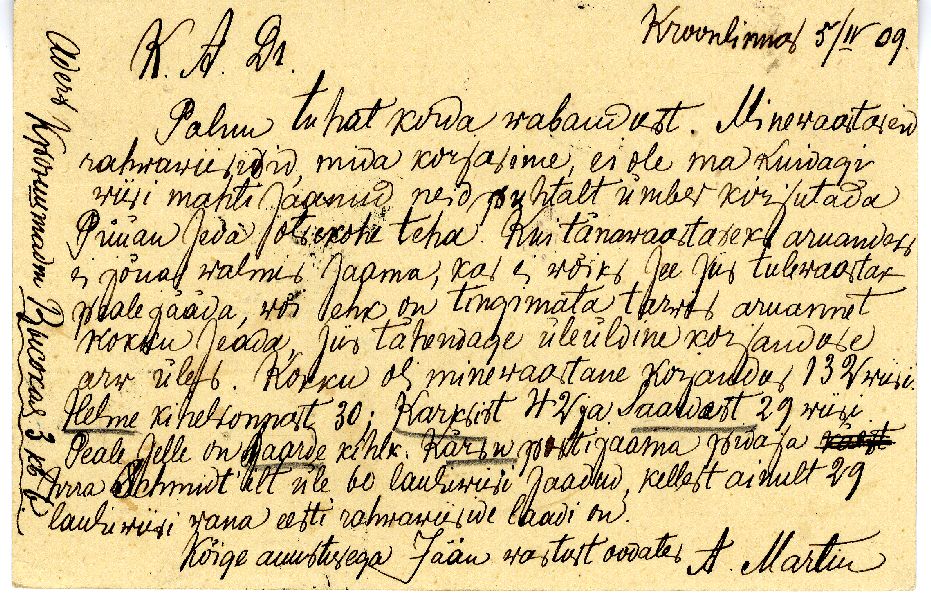 Kroonlinnas 5/IV 09.
K. A. Dr.
Palun tuhat korda wabandust. Minewaastaseid
rahwawiisisid, mida korjasime, ei ole ma kuidagi
wiisi mahti saanud neid puhtalt ümber kirjutada
Püüan seda otsekohe teha. Kui tänawaastaseks aruandeks
ei jõua walmis saama, kas ei wõiks see siis tulewaasta
peale jääda, wõi ehk on tingimata tarwis aruannet
kokku seada, siis tähendage üleüldine korjanduse
arw üless. Kokku oli minewaastane korjandus 132 wiisi.
Helme kihelkonnast 30; Karksist 42 ja Saardest 29 wiisi.
Peale selle on Saarde kihlk. Kärsu postijaama pidaja
herra Schmidt'ilt üle 60 lauluwiisi saadud, kellest ainult 29
lauluwiisi wana eesti rahwawiiside laadi on.
Kõige austusega Jään wastust oodates A. Martin
Adress Кронштадтъ Высокая 3 кв 6.